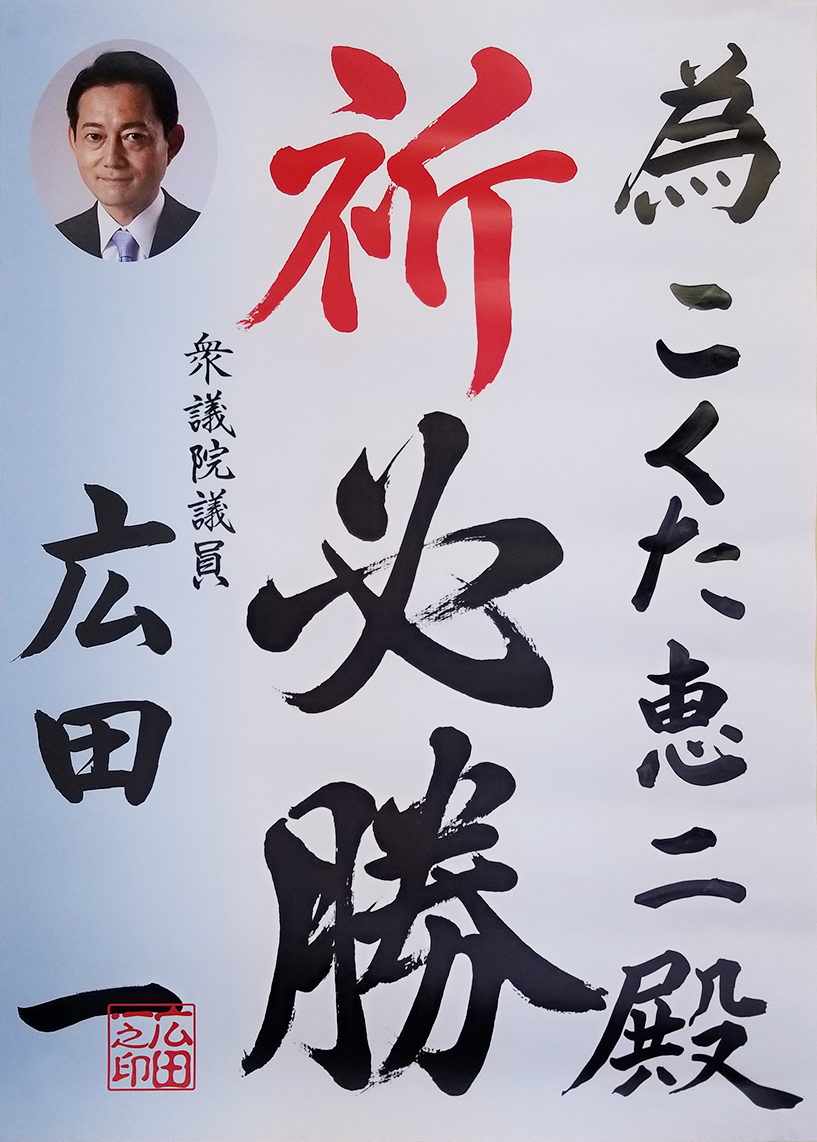 為こくた恵二殿
祈必勝
衆議院議員
広田一
広田
一之印